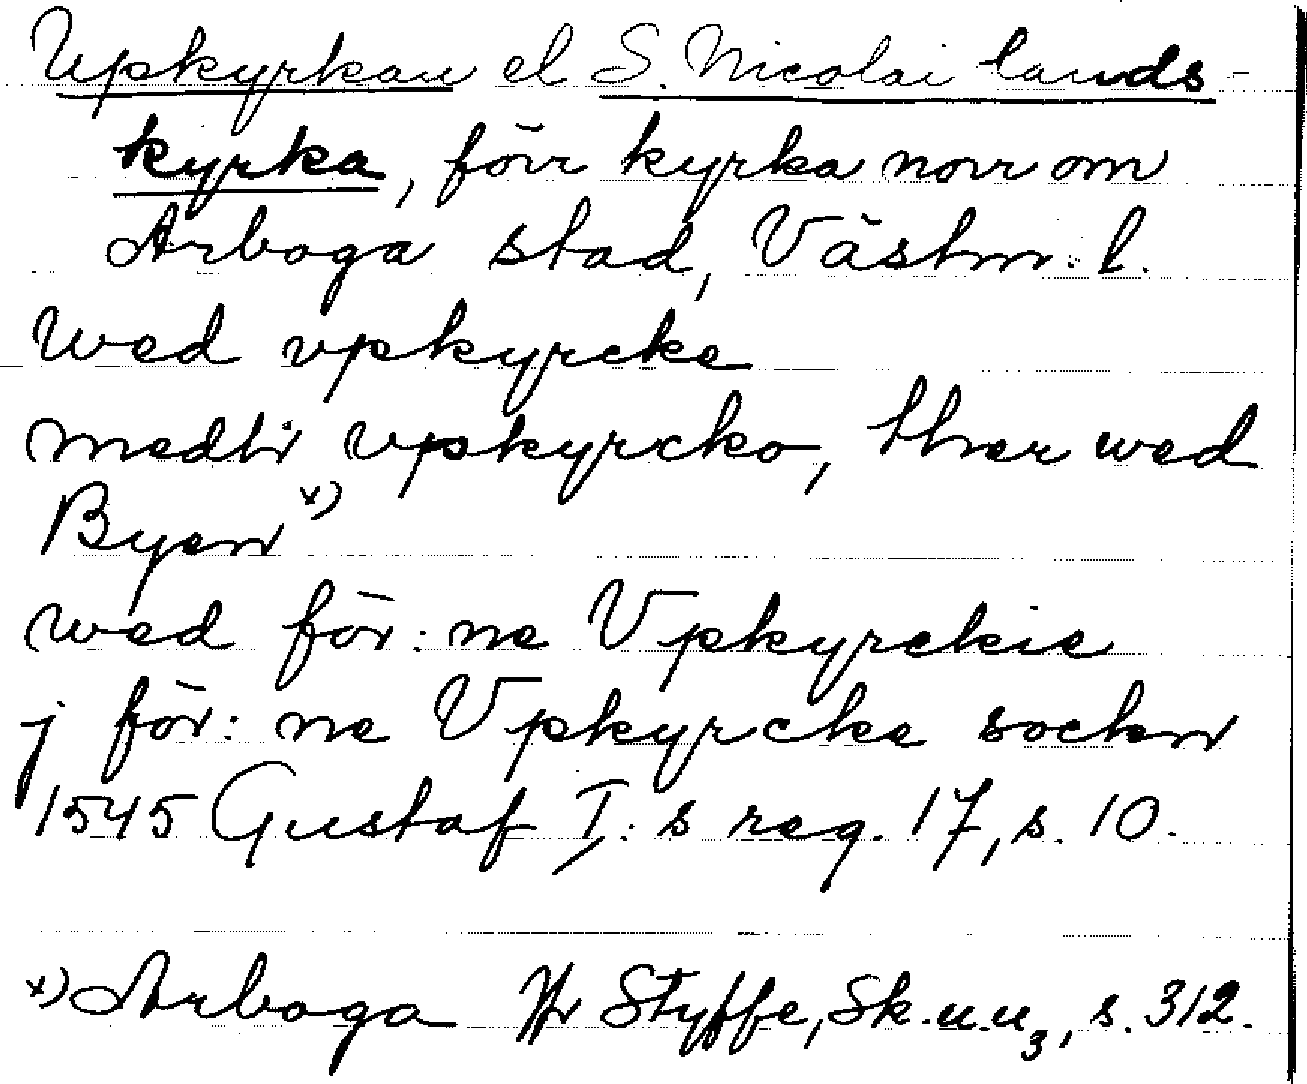 Upkyrkan el S. Nicolai lands-
kyrka, förr kyrka norr om
Arboga stad, Västm. l.
Wed vpkyrcke
medtir vpkyrcko, ther wed
Byen x)
wed för: ne Vpkyrckie
j för: ne Vpkyrcke socken
1545 Gustaf I: s reg. 17, s. 10.
x) Arboga Jfr Styffe, Sk. u. u3, s. 312.